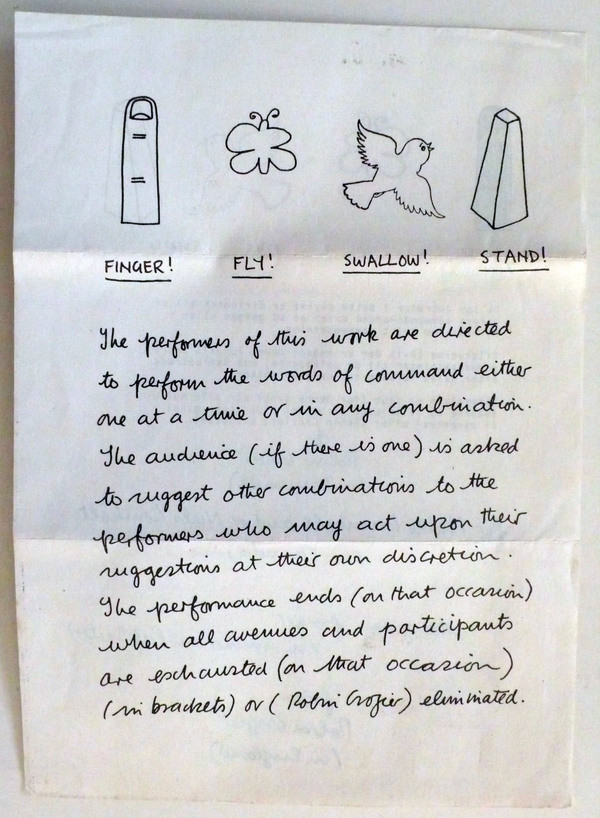 FINGER! FLY! SWALLOW! STAND!
The performers of this work are directed
to perform the words of command either
one at a time or in any combination.
The audience (if there is one) is asked
to suggest other combinations to the
performers who may act upon their
suggestions at their own discretion.
The performance ends (on that occasion)
when all avenues and participants
are exhausted (on that occasion)
(in brackets) or (Robin Crozier) eliminated.